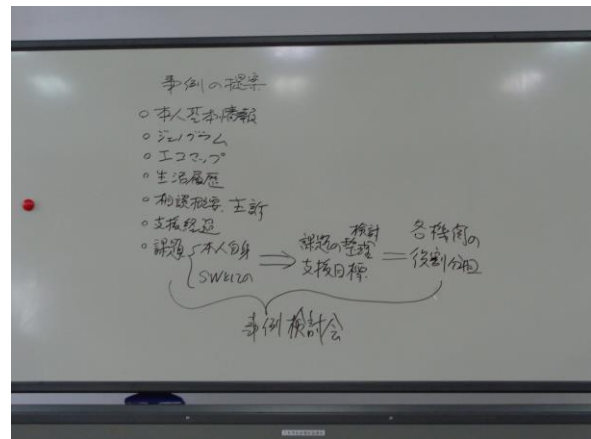 事例の提案
○本人基本情報
○ジェノグラム
○エコマップ
○生活履歴
○相談概要、主訴
○支援経過
○課題 本人自身
SWとしての
課題の整理 検討
支援目標
各機関の
役割分担
事例検討会